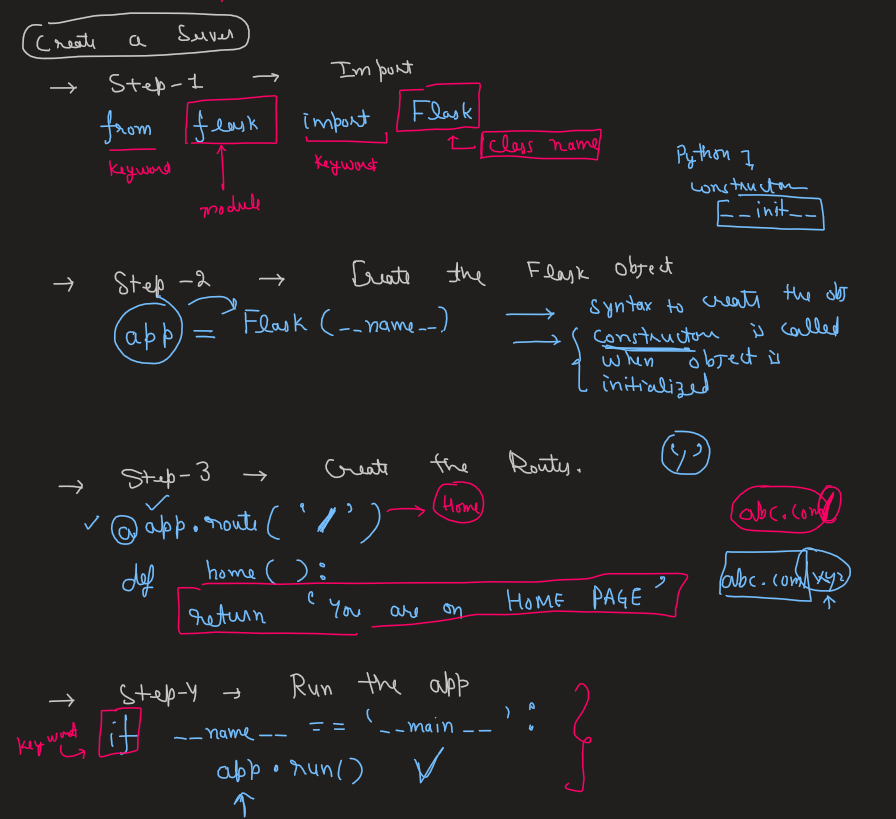 Create a Server
→ Step-1 → Import
from flask import Flask
keyword keyword class name
module
Python ],
constructor
__init__
→ Step-2 → Create the Flask object
app = Flask (__name__)
→ syntax to create the obj
→ { constructor is called
when object is
initialized
→ Step-3 → Create the Routes.
'/'
@app.route( '/' ) → Home
def home ( ) :
return 'You are on HOME PAGE'
abc.com/
abc.com/xyz
→ Step-4 → Run the app
keyword if __name__ == '__main__' :
app.run()